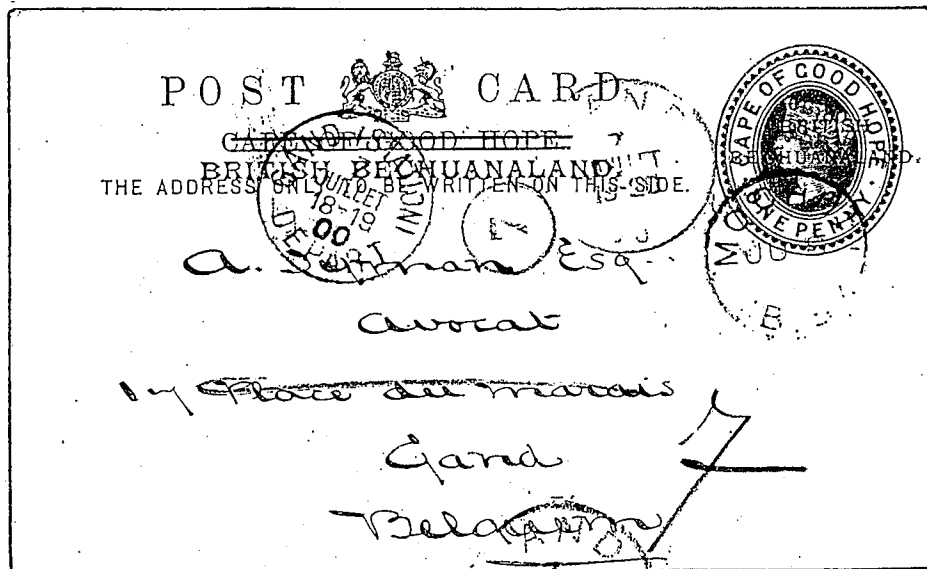 POST CARD
CAPE OF GOOD HOPE.
BRITISH BECHUANALAND
THE ADDRESS ONLY TO BE WRITTEN ON THIS SIDE.
CAPE OF GOOD HOPE
ONE PENNY
BRITISH
BECHUANALAND.
JUILLET
18-19
00
DEPART
A. Esq.
Avocat
Place du Marais
Gand
Belgium